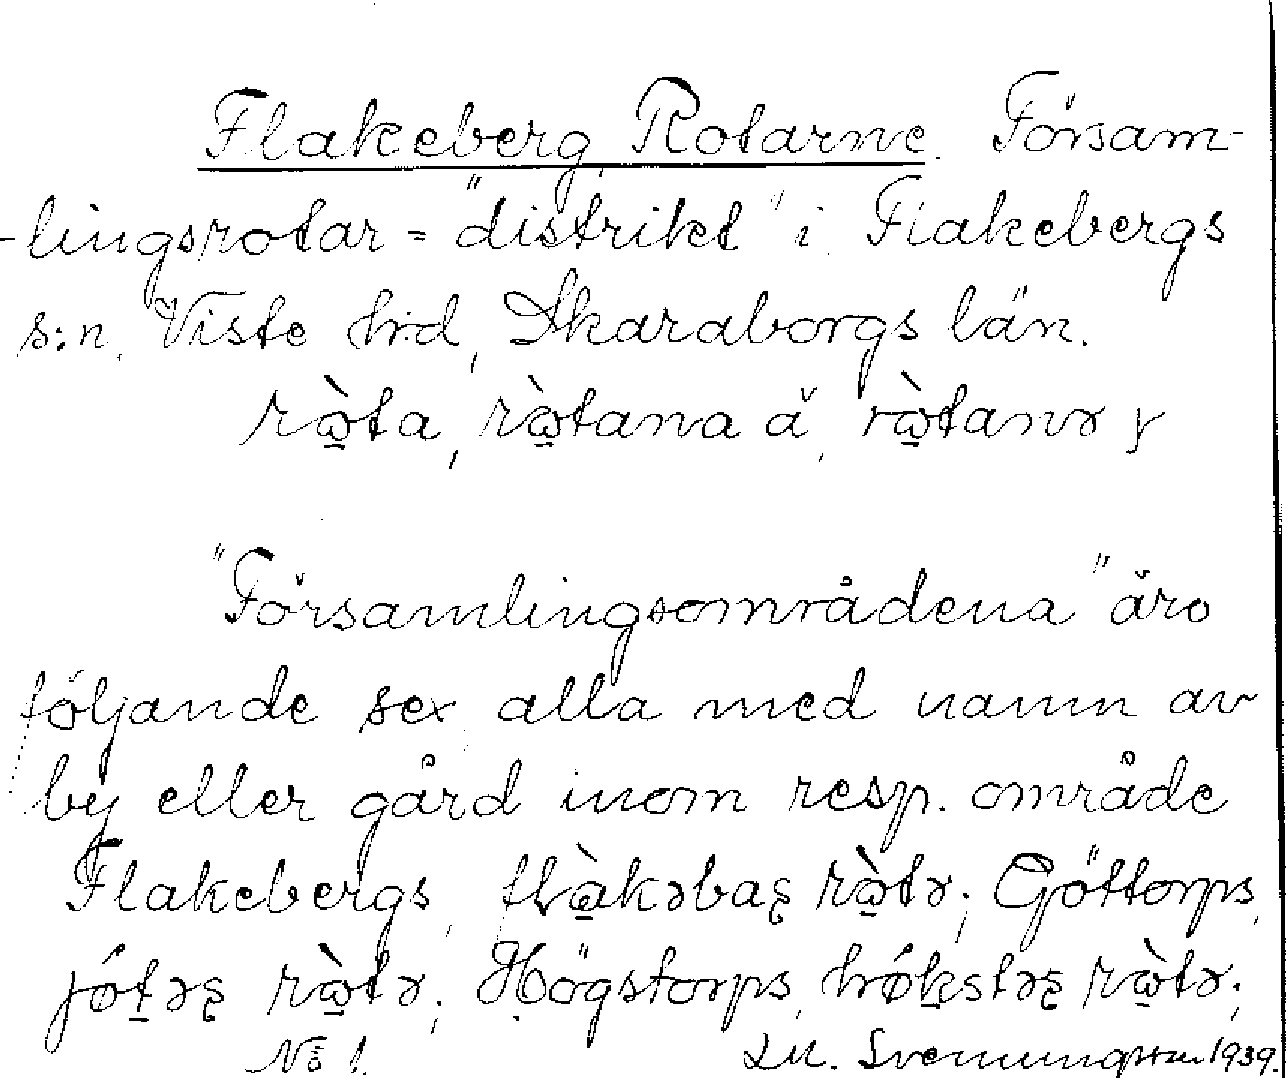 Flakeberg, Rotarne. Försam-
-lingsrotar = "distrikt" i Flakebergs
s:n, Viste h:d, Skaraborgs län.
rὼta, rὼtana ä, rὼtanə
"Församlingsområdena" äro
följande sex, alla med namn av
by eller gård inom resp. område
Flakebergs, rὼtə; Göttorps,
rὼtə; Högstorps, rὼtə;
No 1. Svenungsson 1939.